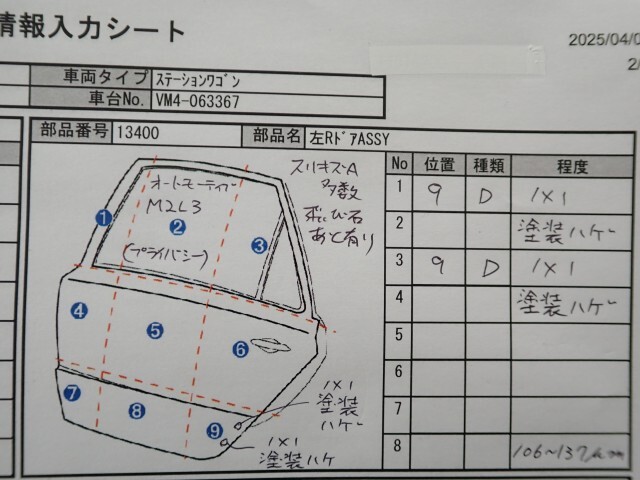 情報入力シート
2025/04/0
2/
車両タイプ ステーションワゴン
車台No. VM4-063367
部品番号 13400 部品名 左RドアASSY
No 位置 種類 程度
1 9 D 1×1
2 塗装ハゲ
3 9 D 1×1
4 塗装ハゲ
5
6
7
8 106~137
オートモーティブ
M2L3
(プライバシー)
スリキズA
多数
飛び石
あと有り
1
2
3
4
5
6
7
8
9
1×1
塗装
ハゲ
1×1
塗装ハゲ